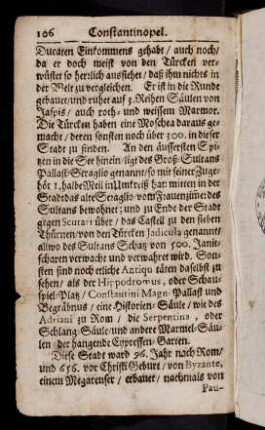 106 Constantinopel.
Ducaten Einkommens gehabt / auch noch/
da er doch meist von den Türcken ver-
wüstet so herzlich aussiehet / daß ihm nichts in
der Welt zu vergleichen. Er ist in die Runde
gebauet/und ruhet auf 3. Reihen Säulen von
Jaspis / auch roth- und weissem Marmor.
Die Türcken haben eine Moschea daraus ge-
macht/ deren sonsten noch über 300. in dieser
Stadt zu finden. An den äussersten Spi-
tzen in die See hinein/ ligt des Groß-Sultans
Pallast/ Seraglio genannt/so mit seiner Zuge-
hör 1. halbe Meil in Umkreiß hat: mitten in der
Stadt das alte Seraglio/ vom Frauenzimer des
Sultans bewohnet; und zu Ende der Stadt
gegen Scutari über / das Castell zu den sieben
Thürnen/von den Türcken Jadicula genannt/
allwo des Sultans Schatz von 500. Janit-
scharen verwacht und verwahret wird. Son-
sten sind noch etliche Antiquitäten daselbst zu
sehen/ als der Hippodromus, oder Schau-
spiel-Platz / Constantini Magn. Pallast und
Begräbnus / eine Historien-Säule / wie des
Adriani zu Rom / die Serpentina, oder
Schlang-Säule/und andere Marmel-Säu-
len / der hangende Cypressen-Garten.
Diese Stadt ward 96. Jahr nach Rom/
und 656. vor Christi Geburt / von Byzante,
einem Megarenser / erbauet / nachmals von
Pau-